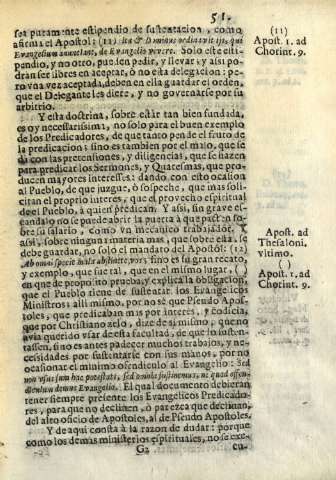 51.
sea puramente estipendio de sustentacion, como
afirma el Apostol: (11) Ita & Dominus ordinavit ijs, qui
Evangelium annuntiant, de Evangelio vivere. Solo este esti-
pendio, y no otro, pueden pedir, y llevar: y assi po-
dran ser libres en aceptar, ò no esta delegacion: pe-
ro vna vez aceptada, deben en ella guardar el orden,
que el Delegante les diere, y no governarse por su
arbitrio.
Y esta doctrina, sobre estàr tan bien fundada,
es oy necessarissima, no solo para el buen exemplo
de los Predicadores, de que tanto pende el fruto de
la predicacion: sino es tambien por el malo, que se
dà con las pretensiones, y diligencias, que se hazen
para predicar los Sermones, y Quaresmas, que pro-
ducen mayores interesses: dando con esto ocasion
al Pueblo, de que juzgue, ò sospeche, que mas soli-
citan el proprio interes, que el provecho espiritual
del Pueblo, à quien predican. Y assi, sin grave es-
candalo no se puede abrir la puerta à que pacten so-
bre su salario, como vn mecanico trabajador. Y
assi, sobre ninguna materia mas, que sobre esta, se
debe guardar, no solo el mandato del Apostol: (12)
Ab omni specie mala abstinete vos; sino es su gran recato,
y exemplo, que fue tal, que en el mismo lugar, ( )
en que de proposito prueba, y explica la obligacion,
que el Pueblo tiene de sustentar los Evangelicos
Ministros: alli mismo, por no sè que Pseudo Apos-
toles, que predicaban mas por interès, y codicia,
que por Christiano zelo, dize de sì mismo, que no
avia querido vsar de esta facultad, de que lo susten-
tassen, sino es antes padecer muchos trabajos, y ne-
cessidades por sustentarse con sus manos, por no
ocasionar el minimo ofendiculo al Evangelio: Sed
non vsus sum hac potestate, sed omnia sustinemus, ne quod offen-
diculum demus Evangelio. El qual documento debieran
tener siempre presente los Evangelicos Predicado-
res, para que no declinen, ò parezca que declinan,
del alto oficio de Apostoles, al de Pseudo Apostoles.
Y de aqui consta à la razon de dudar: porque
como los demàs ministerios espirituales, no se exe-
G2 cu-
(11)
Apost. 1. ad
Chorint. 9.
Apost. ad
Thesaloni.
vltimo.
( )
Apost. 1. ad
Chorint. 9.